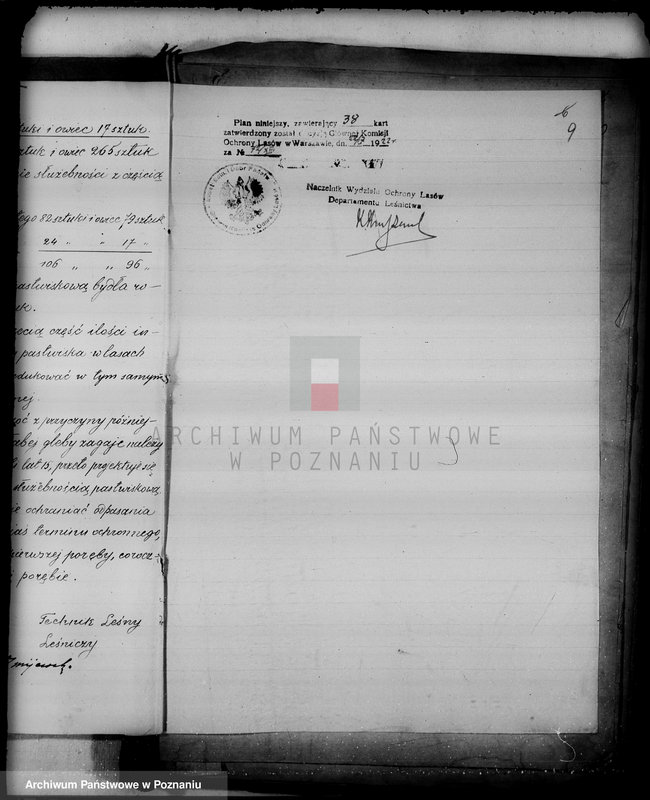 tuki i owiec 17 sztuk.
sztuk i owiec 265 sztuk
nie służebności z częścią
tego 82 sztuki i owiec 79 sztuk.
24 " " 17 "
106 " " 96 "
pastwiskową bydła ro-
uk.
część ilości in-
pastwiska w lasach
redukować w tym samym
nej.
z przyczyny później-
słabej gleby zagaje należy
lat 15, przeto projektuje się
służebnością pastwiskową
nie ochraniać od pasania
terminu ochronnego,
pierwszej poręby, corocz-
porębie.
Technik Leśny
Leśniczy
9
Plan niniejszy, zawierający 38 kart
zatwierdzony został decyzją Głównej Komisji
Ochrony Lasów w Warszawie, dn. 1922 r.
za №
Naczelnik Wydziału Ochrony Lasów
Departamentu Leśnictwa
ARCHIWUM PAŃSTWOWE
W POZNANIU
Archiwum Państwowe w Poznaniu